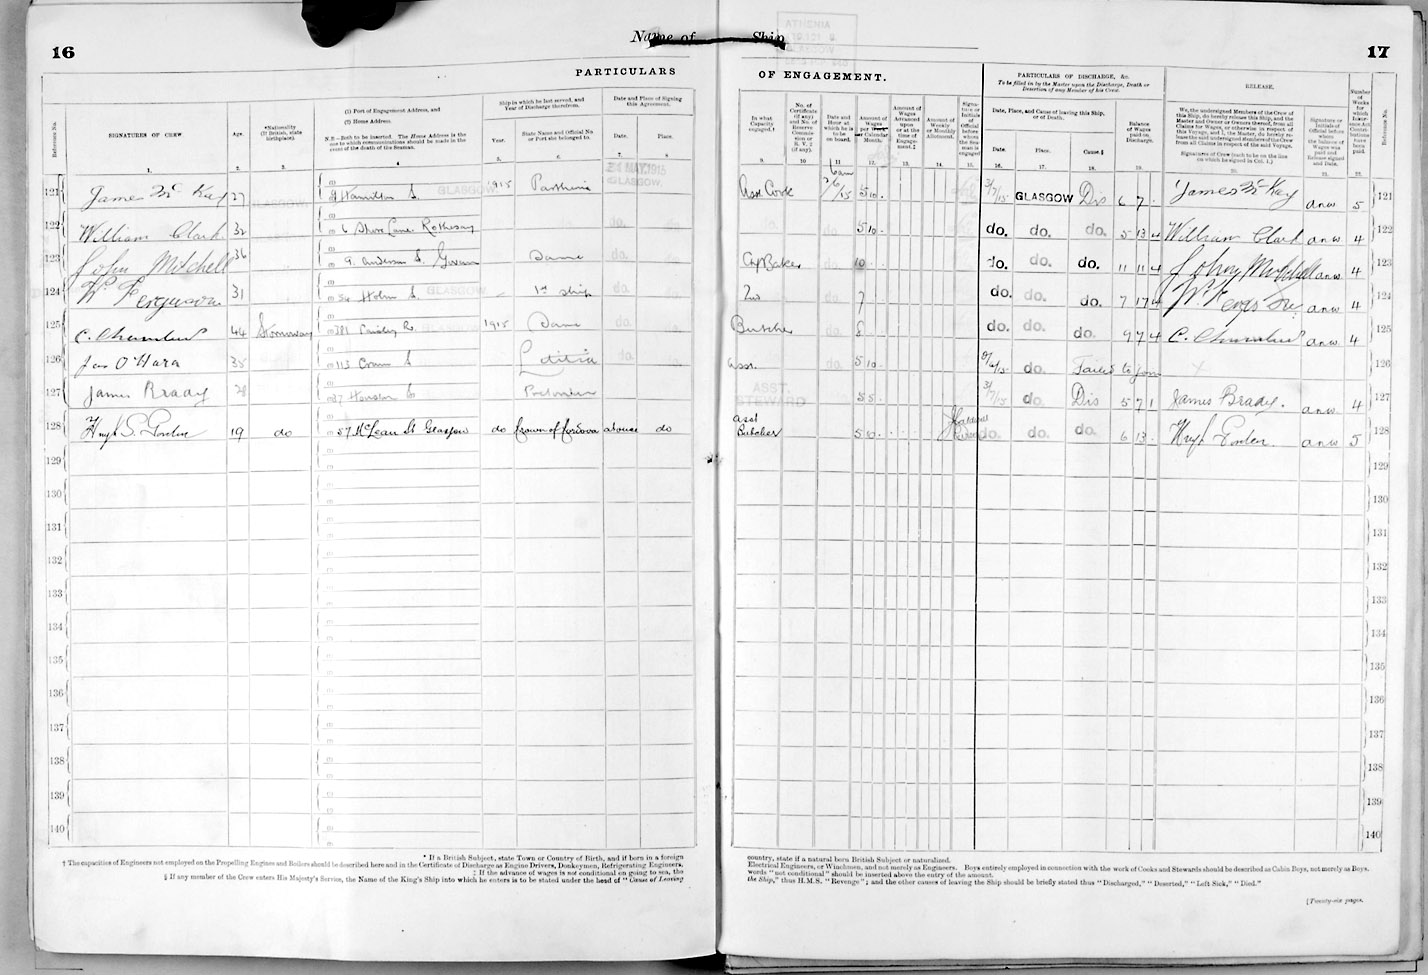 16
Name of Ship
17
ATHENIA
GLASGOW
PARTICULARS
OF ENGAGEMENT.
PARTICULARS OF DISCHARGE, &c.
To be filled in by the Master upon the Discharge, Death or
Desertion of any Member of his Crew.
RELEASE.
Reference No.
SIGNATURES OF CREW
Age.
*Nationality
(If British, state
birthplace).
(1) Port of Engagement Address, and
(2) Home Address.
N.B.—Both to be inserted. The Home Address is the
one to which communications should be made in the
event of the death of the Seaman.
Ship in which he last served, and
Year of Discharge therefrom.
Year.
State Name and Official No.
or Port she belonged to.
Date and Place of Signing
this Agreement.
Date.
Place.
In what
Capacity
engaged.†
No. of
Certificate
(if any)
and No. of
Reserve
Commis-
sion or
R. V. 2
(if any).
Date and
Hour at
which he is
to be
on board.
Amount of
Wages
per
Calendar
Month.
Amount of
Wages
Advanced
upon
or at the
time of
Engage-
ment.‡
Amount of
Weekly
or Monthly
Allotment.
Signa-
ture or
Initials
of
Official
before
whom
the Sea-
man is
engaged
Date, Place, and Cause of leaving this Ship,
or of Death.
Date.
Place.
Cause.§
Balance
of Wages
paid on
Discharge.
We, the undersigned Members of the Crew of
this Ship, do hereby release this Ship, and the
Master and Owner or Owners thereof, from all
Claims for Wages, or otherwise in respect of
this Voyage, and I, the Master, do hereby re-
lease the undersigned Members of the Crew
from all Claims in respect of the said Voyage.
Signatures of Crew (each to be on the line
on which he signed in Col. 1.)
Signature or
Initials of
Official before
whom
the balance of
Wages was
paid and
Release signed
and Date.
Number
of
Weeks
for
which
Insur-
ance Act
Contri-
butions
have
been
paid.
Reference No.
1. 2. 3. 4. 5. 6. 7. 8. 9. 10 11 12. 13. 14. 15. 16. 17. 18. 19. 20. 21. 22.
24 MAY. 1915
GLASGOW
121 James McKay 27 9 Hamilton S. 1915 Parthenia Asst Cook 6am 2/6/15 5 10 3/7/15 GLASGOW Dis 6 7 James McKay anw 5 121
122 William Clark 32 6 Shore Lane Rothesay 5 10 do. do. do. 5 13 4 William Clark anw 4 122
123 John Mitchell 36 9. Anderson S. Govan Same Cf Baker 10 do. do. do. 11 11 4 John Mitchell anw 4 123
124 W. Ferguson 31 54 Holm S. 1st Ship 2nd 7 do. do. do. 7 17 4 W. Ferguson anw 4 124
125 C. Chambers 44 Stornoway 1915 Same Butcher 8 do. do. do. 9 7 4 C. Chambers anw 4 125
126 Jas O'Hara 35 115 S Letitia Asst. 5 10 do. Failed to join 126
127 James Brady 28 ASST. STEWARD 5 5 3/7/15 do. Dis 5 7 1 James Brady. anw 4 127
128 Hugh S. Gorden 19 do 57 McLean St Glasgow do Crown of Cordova do Asst Butcher 5 10 do. do. do. 6 13 Hugh Gorden. anw 5 128
129 129
130 130
131 131
132 132
133 133
134 134
135 135
136 136
137 137
138 138
139 139
140 140
* If a British Subject, state Town or Country of Birth, and if born in a foreign
† The capacities of Engineers not employed on the Propelling Engines and Boilers should be described here and in the Certificate of Discharge as Engine Drivers, Donkeymen, Refrigerating Engineers,
‡ If the advance of wages is not conditional on going to sea, the
§ If any member of the Crew enters His Majesty's Service, the Name of the King's Ship into which he enters is to be stated under the head of "Cause of Leaving
country, state if a natural born British Subject or naturalised.
Electrical Engineers, or Winchmen, and not merely as Engineers. Boys entirely employed in connection with the work of Cooks and Stewards should be described as Cabin Boys, not merely as Boys.
words "not conditional" should be inserted above the entry of the amount.
the Ship," thus H.M.S. "Revenge"; and the other causes of leaving the Ship should be briefly stated thus "Discharged," "Deserted," "Left Sick," "Died."
[Twenty-six pages.